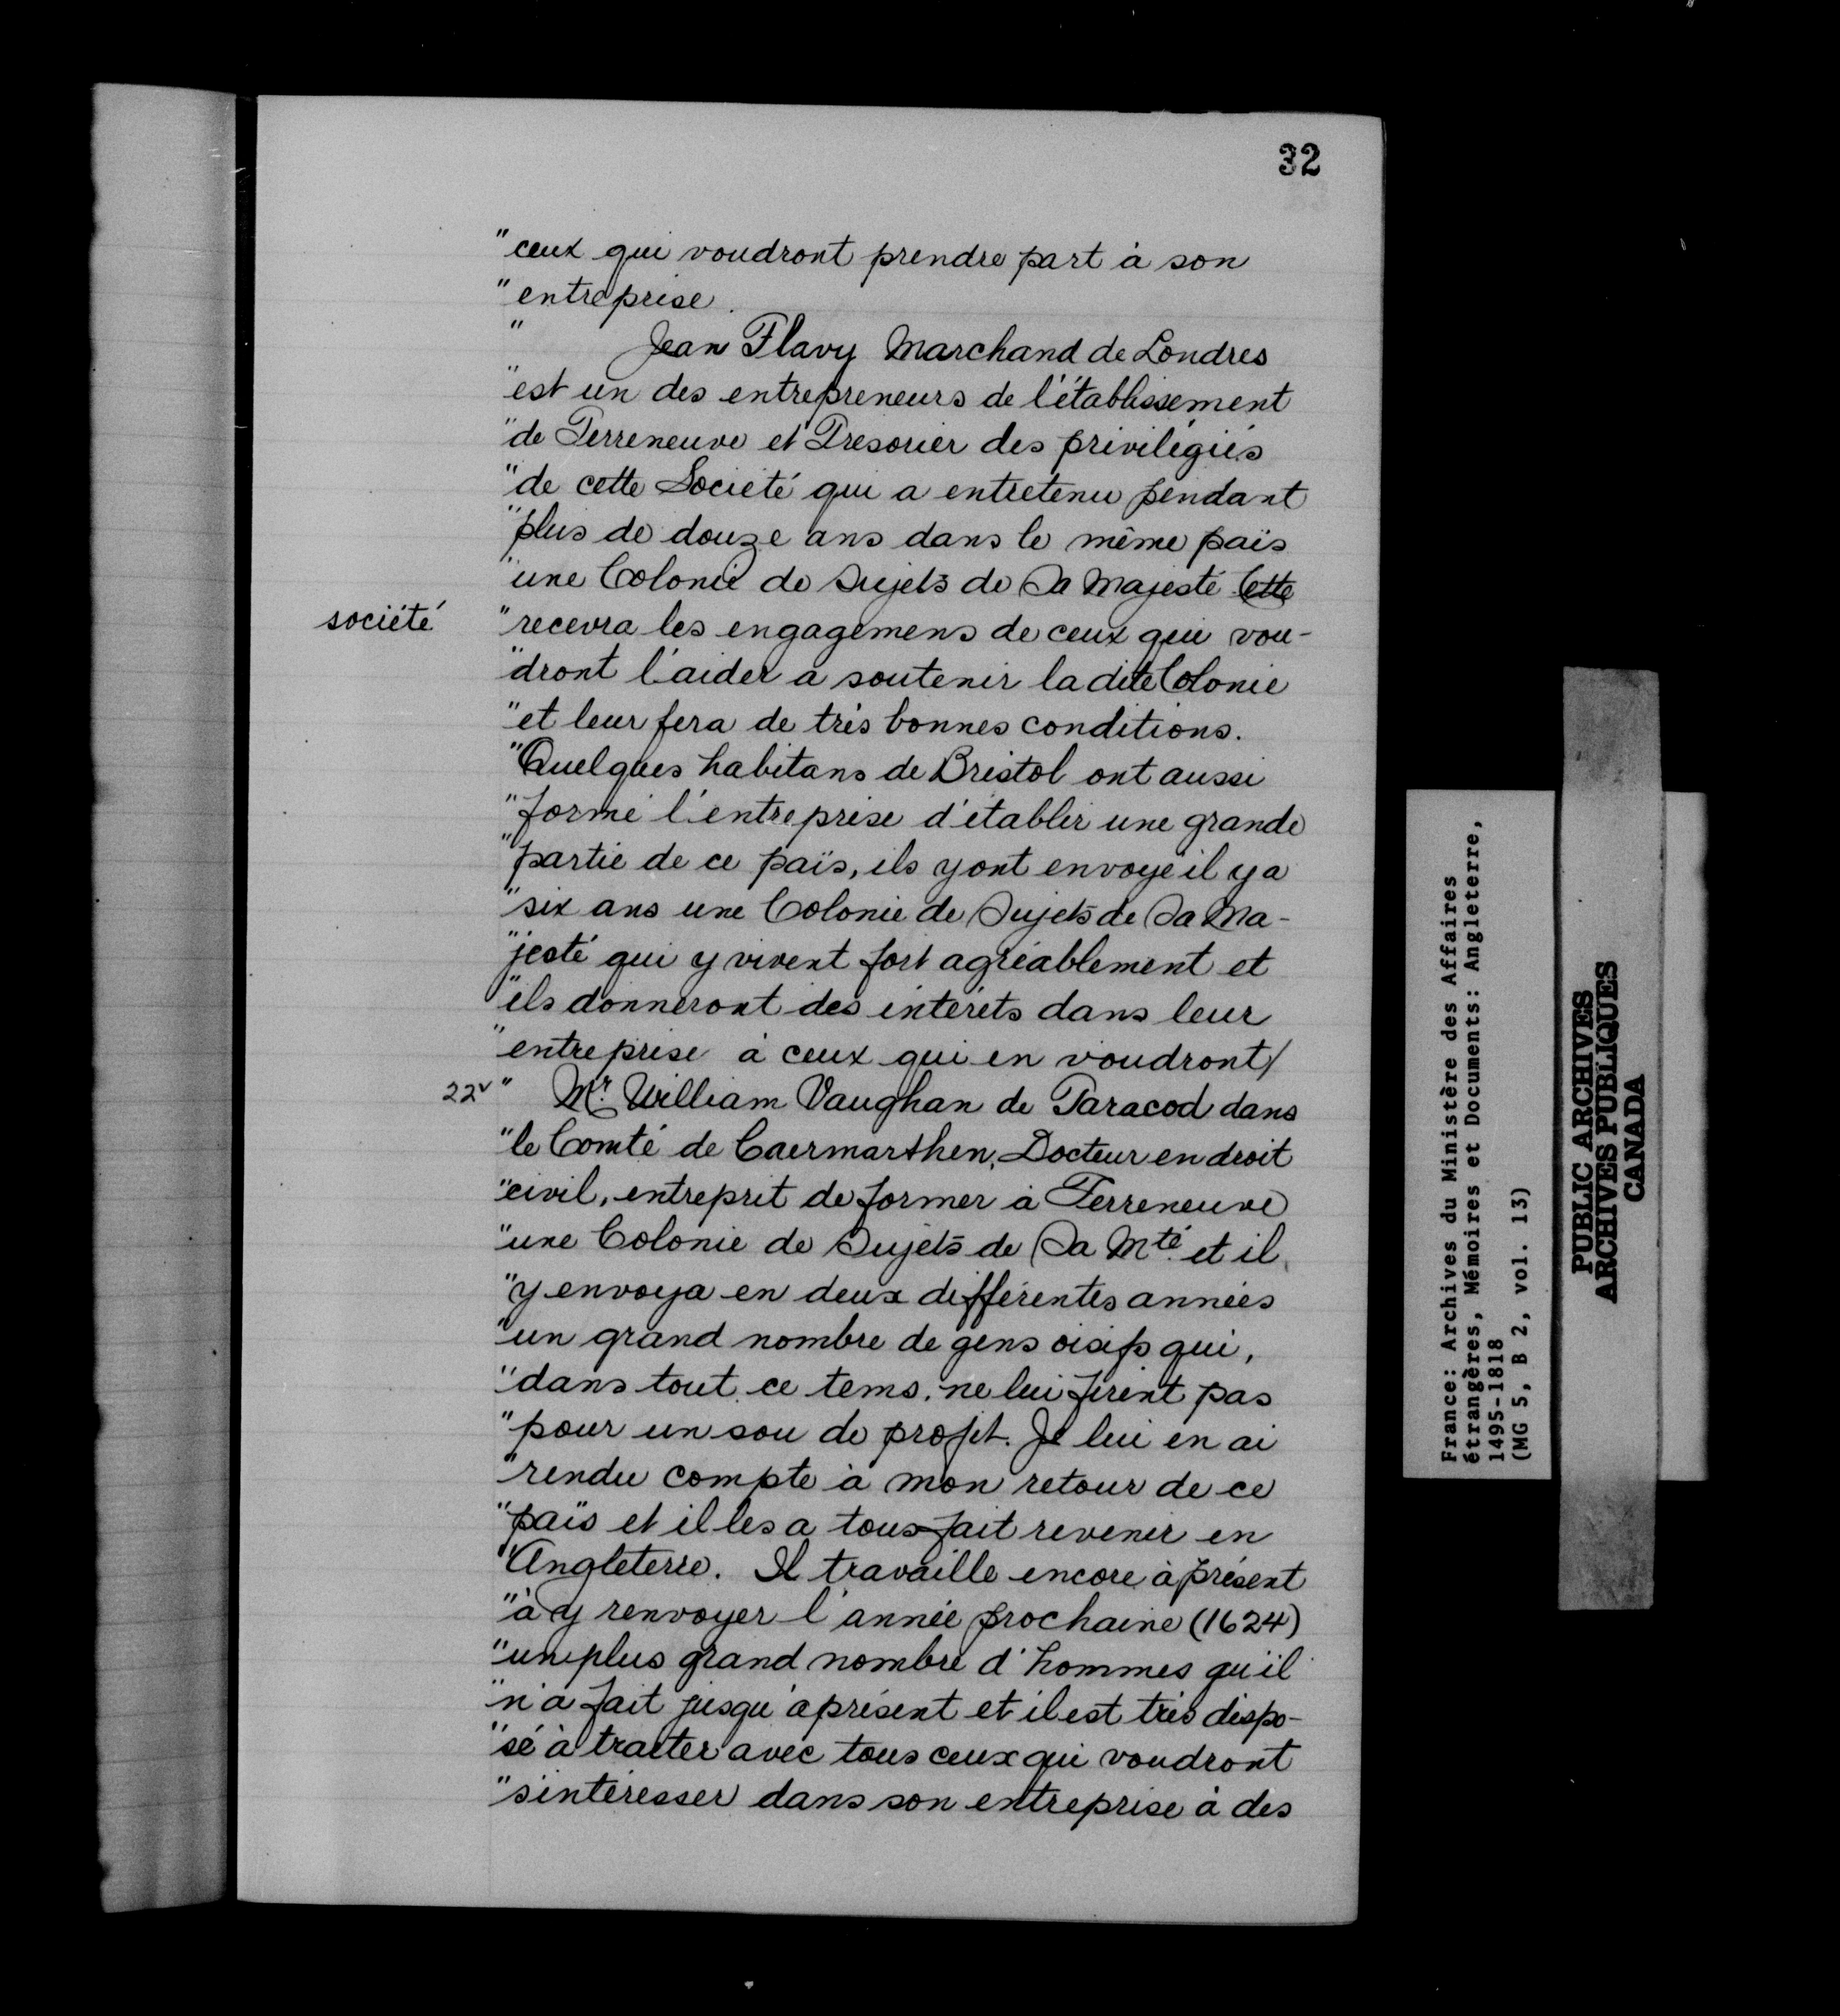 32
"ceux qui voudront prendre part à son
"entreprise.
" Jean Flavy Marchand de Londres
"est un des entrepreneurs de l'établissement
"de Terreneuve et Tresorier des privilégiés
"de cette Société qui a entretenu pendant
"plus de douze ans dans le même païs
"une Colonie de Sujets de Sa Majesté Cette
société "recevra les engagemens de ceux qui vou-
"dront l'aider a soutenir la dite Colonie
"et leur fera de très bonnes conditions.
"Quelques habitans de Bristol ont aussi
"formé l'entreprise d'établir une grande
"partie de ce païs, ils y ont envoyé il y a
"six ans une Colonie de Sujets de Sa Ma-
"jesté qui y vivent fort agréablement et
"ils donneront des intérêts dans leur
"entreprise à ceux qui en voudront/
22v " Mr. William Vaughan de Taracod dans
"le Comté de Caermarthen, Docteur en droit
"civil, entreprit de former à Terreneuve
"une Colonie de Sujets de Sa Mté. et il
"y envoya en deux différentes années
"un grand nombre de gens oisifs qui,
"dans tout ce tems, ne lui firent pas
"pour un sou de profit. Je lui en ai
"rendu compte à mon retour de ce
"païs et il les a tous fait revenir en
"Angleterre. Il travaille encore à présent
"à y renvoyer l'année prochaine (1624)
"un plus grand nombre d'hommes qu'il
"n'a fait jusqu'à présent et il est très dispo-
"sé à traiter avec tous ceux qui voudront
"s'intéresser dans son entreprise à des
France: Archives du Ministère des Affaires
étrangères, Mémoires et Documents: Angleterre,
1495-1818
(MG 5, B 2, vol. 13)
PUBLIC ARCHIVES
ARCHIVES PUBLIQUES
CANADA